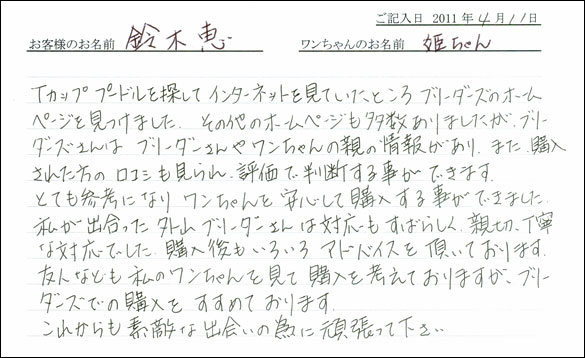 ご記入日 2011年4月11日
お客様のお名前 鈴木恵 ワンちゃんのお名前 姫ちゃん
Tカッププードルを探してインターネットを見ていたところブリーダーズのホーム
ページを見つけました。その他のホームページも多数ありましたが、ブリー
ダーズさんはブリーダーさんやワンちゃんの親の情報があり、また、購入
された方の口コミも見られ、評価で判断する事ができます。
とても参考になりワンちゃんを安心して購入する事ができました。
私が出合ったブリーダーさんは対応もすばらしく、親切、丁寧
な対応でした。購入後もいろいろアドバイスを頂いております。
友人なども私のワンちゃんを見て購入を考えておりますが、ブリー
ダーズでの購入をすすめております。
これからも素敵な出会いの為に頑張って下さい